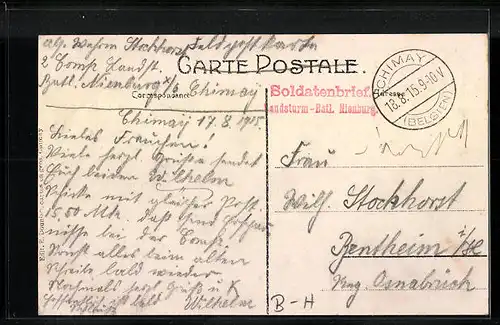 Abs. Wehrm Stockhorst Feldpostkarte
2 Comp Landst.
Batl. Nienburg X/6
Chimay
CARTE POSTALE.
Correspondance
Adresse
Soldatenbrief.
Landsturm-Batl. Nienburg.
CHIMAY
18.8.15.9-10V
(BELGIEN)
Chimay 17.8.1915.
Liebes Frauchen!
Viele herzl. Grüße sendet
Euch lieben Wilhelm
Schicke mit gleicher Post
15,50 Mk. Das sind
bei der Comp.
Sonst alles beim alten
Schreibe bald wieder
Nochmals herzl Gruß u K
bald Wilhelm
Frau
Wilh. Stockhorst
Bentheim i/H
Reg. Osnabrück
B-H